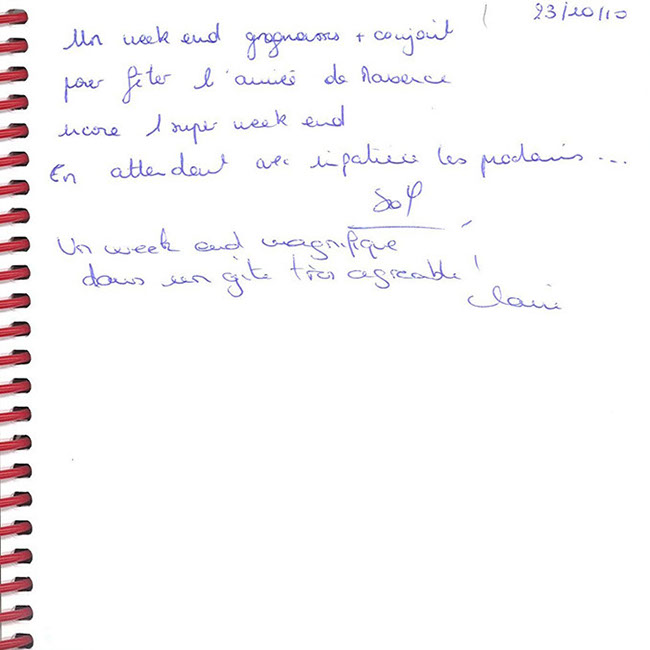 23/10/10
Un week end grognasses + conjoint
pour fêter l'année de
encore 1 super week end
En attendant avec impatience les prochains...
Sof
Un week end magnifique
dans un gîte très agréable !
Claire